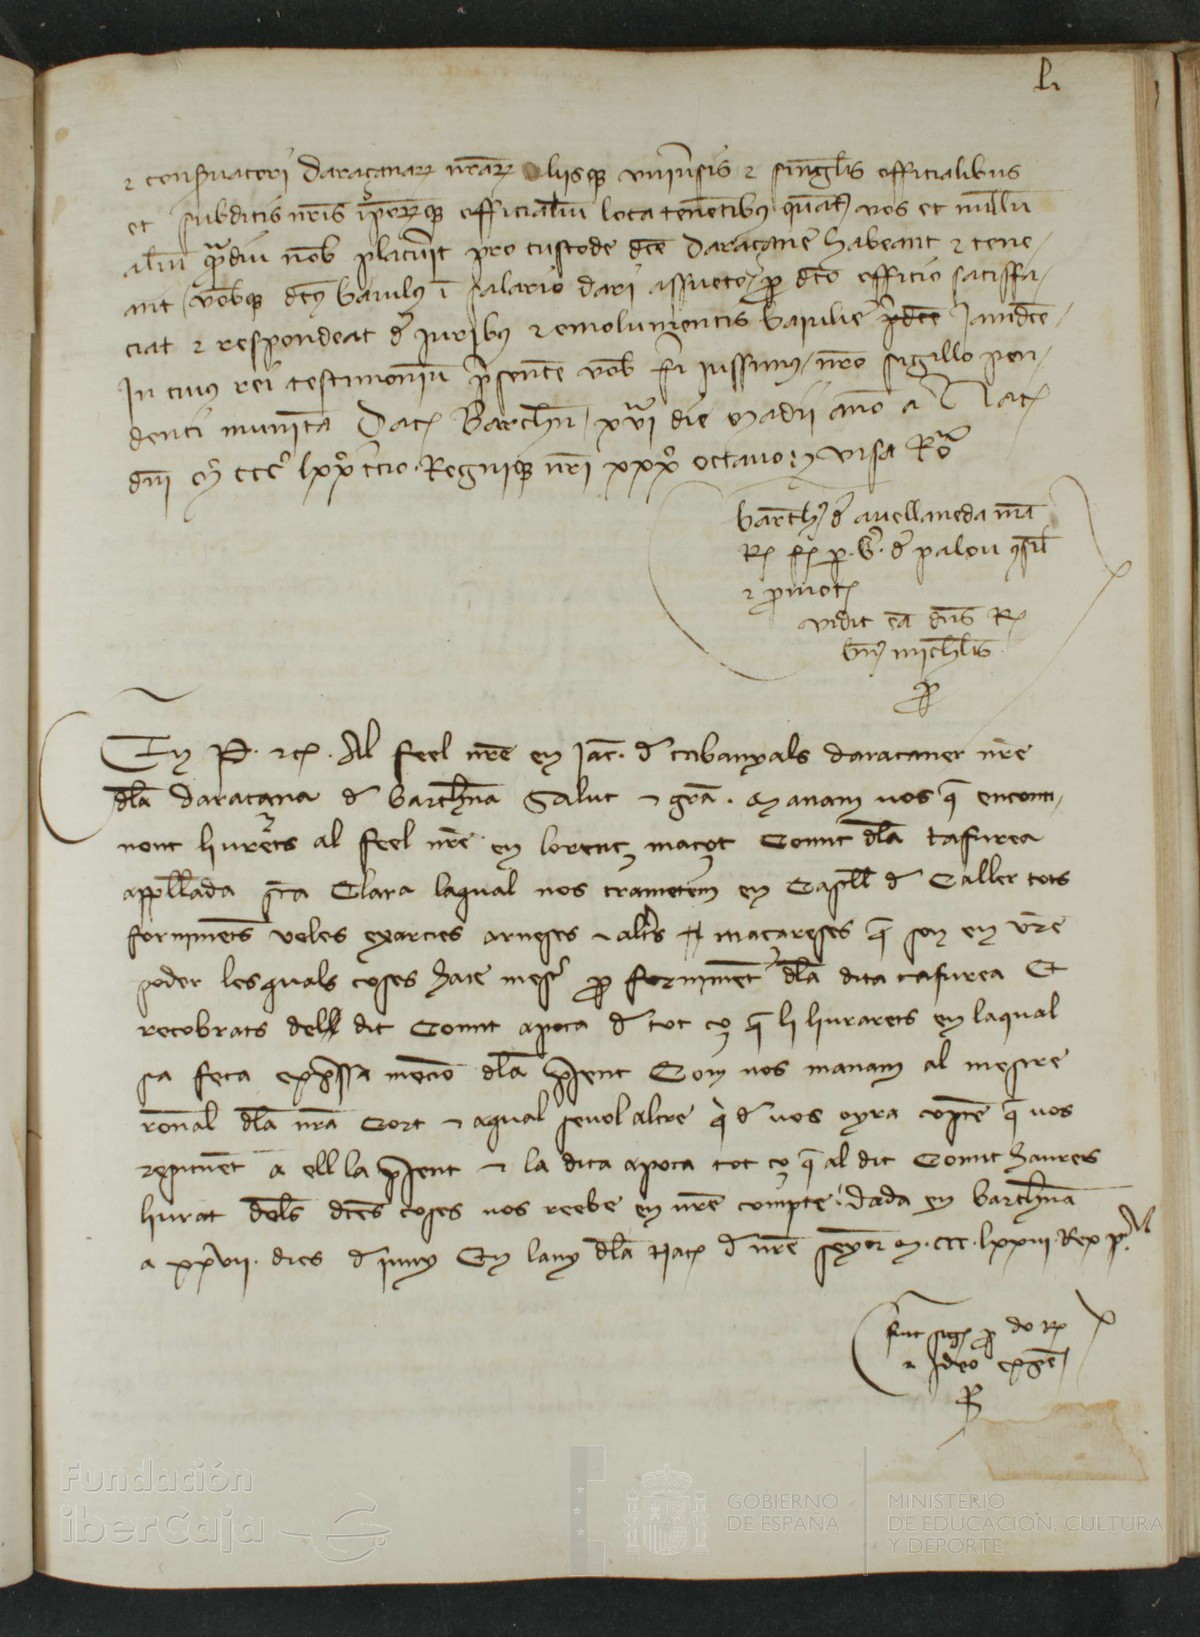 li
et conseruatori daraçanarum nrarum aliisque vniusis et singlis officialibus
et subditis nris iporumque officialium loca tenentibus quatenus vos et nullum
alium quamdiu nob placuit pro custode dce daraçane habeant et tene/
ant vobque dcus baiulus in salario dari assueto pro dco officio satisffa/
ciat et respondeat de iuribus et emolumentis baiulie pdce Iamdce/
In cuius rei testimonium psentem vob fi iussimus nro sigillo pen/
denti munitam Dat Barchn xvi die madii anno a Nat
dni M CCC lxx tcio Regnique nri xxx octauo visa Ro
barth de auellaneda mand
R f p b de palou consil
et pmot
vidit eam dns R
bn michlis
p
En P etc Al feel nre en Jac de cabanyals daraçaner nre
dla daraçana de barchna Salut et gra Manam vos que encontin/
nent liurets al feel nre en lorenç maçot Comit dla tafurea
appllada sta Clara laqual nos trametem en Castll de Caller tots
forniments veles exarcies arneses et altres macareses que son en vre
poder lesquals coses hare mest per forniment dla dita tafurea Et
recobrats del dit Comit apoca de tot ço que li liurarets en laqual
sia feta expssa mencio dla psent Com nos manam al mestre
ronal dla nra Cort et aqual seuol altre qui de vos oyra compte que vos
restituent a ell la psent et la dita apoca tot ço que al dit Comit haurets
liurat dels dces coses vos reebe en vre compte dada en barchna
a xxvii dies de juny En lany dla Nat de nre senyor M CCC lxxiii Rex P
fuit sig p do R
et ideo expde
P
Fundación
iberCaja
GOBIERNO
DE ESPAÑA
MINISTERIO
DE EDUCACIÓN, CULTURA
Y DEPORTE